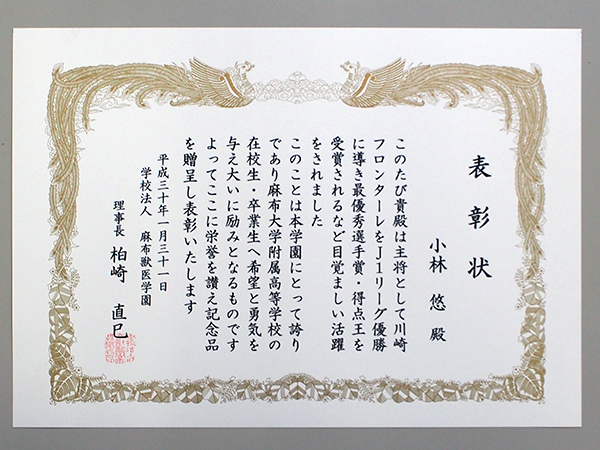 表彰状
小林 悠 殿
このたび貴殿は主将として川崎
フロンターレをJ1リーグ優勝
に導き最優秀選手賞・得点王を
受賞されるなど目覚ましい活躍
をされました
このことは本学園にとって誇り
であり麻布大学附属高等学校の
在校生・卒業生へ希望と勇気を
与え大いに励みとなるものです
よってここに栄誉を讃え記念品
を贈呈し表彰いたします
平成三十年一月三十一日
学校法人 麻布獣医学園
理事長 柏崎 直巳